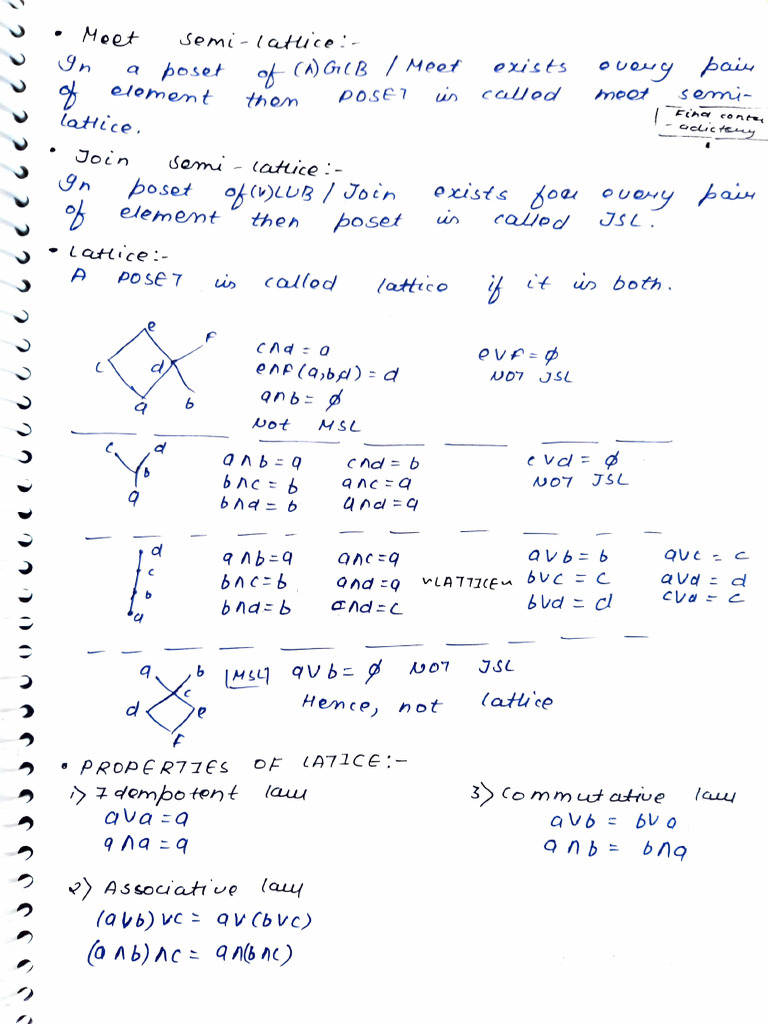 • Meet semi-lattice:-
In a poset of (∧)GLB / Meet exists every pair
of element then POSET is called meet semi-
lattice.
Find contr
-adictory
• Join semi-lattice:-
In poset of(∨)LUB / Join exists for every pair
of element then poset is called JSL.
• Lattice:-
A POSET is called lattice if it is both.
e
f
c
d
a
b
c∧d = a
e∧f(a,b,d) = d
a∧b = ϕ
Not MSL
e∨f = ϕ
NOT JSL
c d
b
a
a∧b = a c∧d = b
b∧c = b a∧c = a
b∧d = b a∧d = a
c∨d = ϕ
NOT JSL
d
c
b
a
a∧b = a a∧c = a
b∧c = b a∧d = a
b∧d = b c∧d = c
~LATTICE~
a∨b = b a∨c = c
b∨c = c a∨d = d
b∨d = d c∨d = c
a b
c
d e
f
[MSL] a∨b = ϕ NOT JSL
Hence, not lattice
• PROPERTIES OF LATICE:-
1) Idempotent law
a∨a = a
a∧a = a
3) Commutative law
a∨b = b∨a
a∧b = b∧a
2) Associative law
(a∨b)∨c = a∨(b∨c)
(a∧b)∧c = a∧(b∧c)